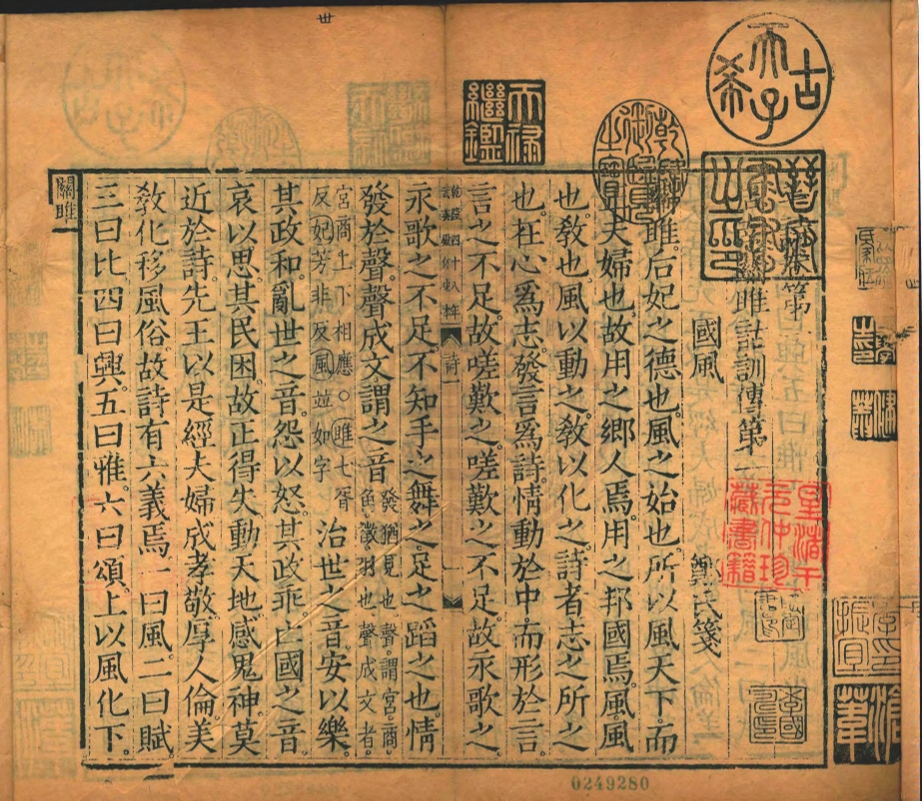 雎詁訓傳第一
國風 鄭氏箋
雎。后妃之德也。風之始也。所以風天下。而
夫婦也。故用之鄉人焉。用之邦國焉。風。風
也。敎也。風以動之。敎以化之。詩者志之所之
也。在心爲志。發言爲詩。情動於中而形於言。
言之不足故嗟歎之。嗟歎之不足。故永歌之。
詩一
永歌之不足不知手之舞之。足之蹈之也。情
發於聲。聲成文謂之音 發猶見也聲謂宮商角徵羽也聲成文者
宮商上下相應○雎七胥反妃芳非反風並如字 治世之音。安以樂。
其政和。亂世之音。怨以怒。其政乖。亡國之音。
哀以思。其民困。故正得失動天地感鬼神。莫
近於詩。先王以是經夫婦成孝敬。厚人倫。美
敎化移風俗。故詩有六義焉。一曰風。二曰賦。
三曰比四曰興。五曰雅。六曰頌。上以風化下。
關雎
古希天子
乾隆御覽之寶
天祿繼鑑
0249280